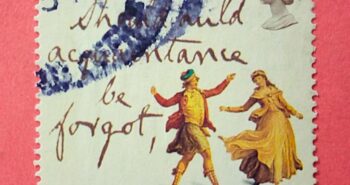 Should auld
acquaintance
be
forgot,